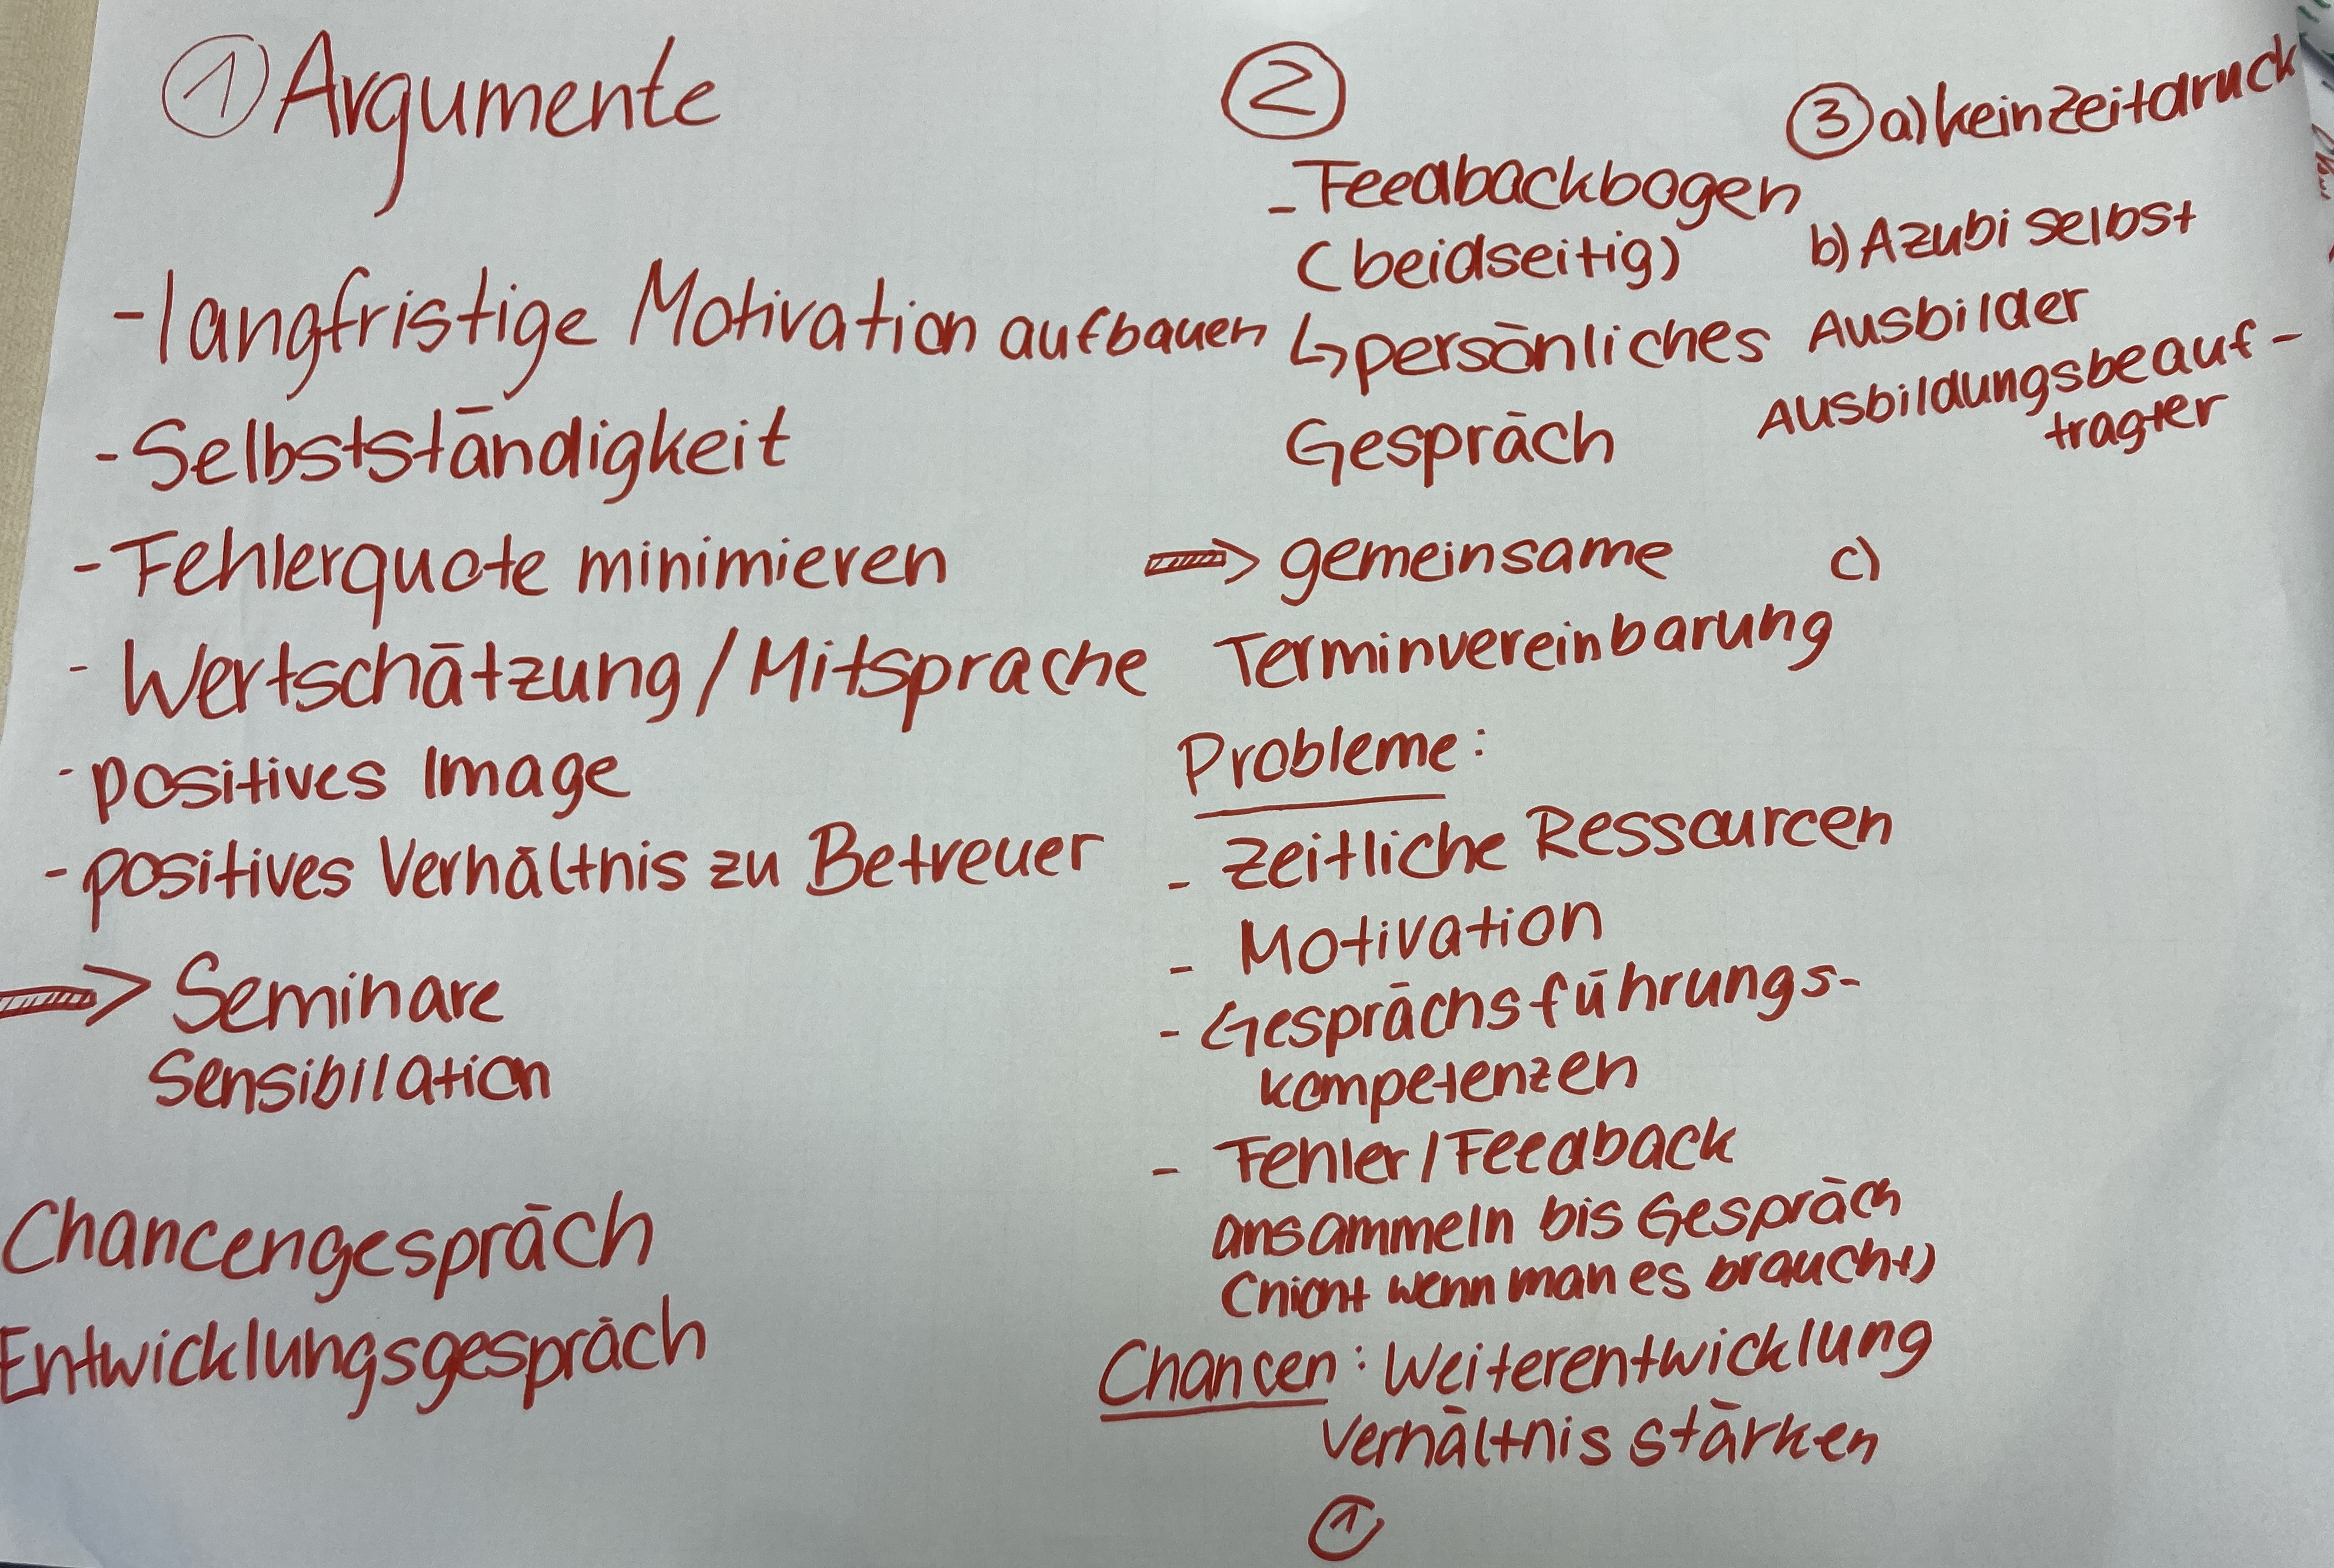 ① Argumente
- langfristige Motivation aufbauen
- Selbstständigkeit
- Fehlerquote minimieren
- Wertschätzung / Mitsprache
- positives Image
- positives Verhältnis zu Betreuer
⇒ Seminare
Sensibilation
Chancengespräch
Entwicklungsgespräch
②
- Feedbackbogen
(beidseitig)
↳ persönliches
Gespräch
⇒ gemeinsame
Terminvereinbarung
Probleme:
- zeitliche Ressourcen
- Motivation
- Gesprächsführungs-
kompetenzen
- Fehler / Feedback
ansammeln bis Gespräch
(nicht wenn man es braucht)
Chancen: Weiterentwicklung
Verhältnis stärken
①
③ a) kein Zeitdruck
b) Azubi selbst
Ausbilder
Ausbildungsbeauf-
tragter
c)